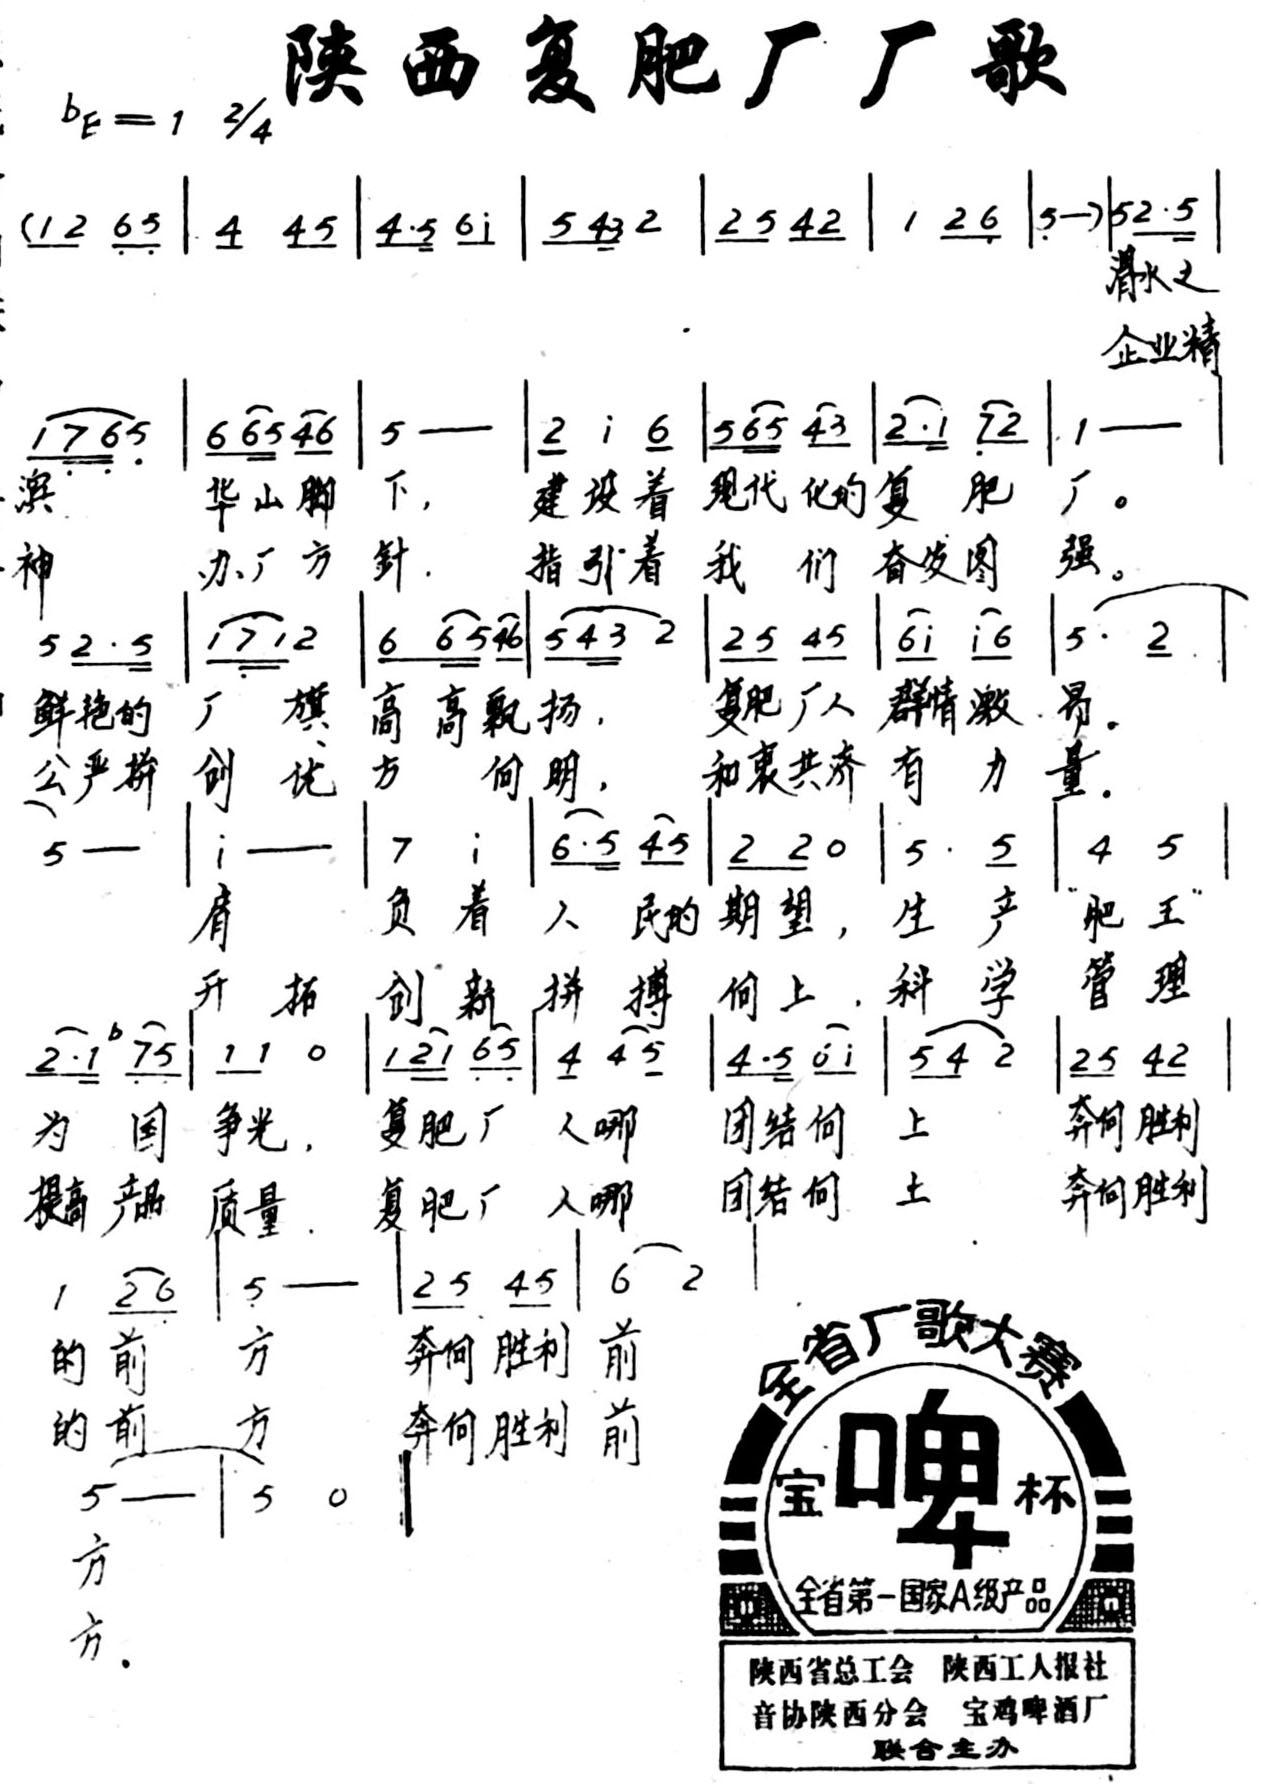 陕西复肥厂厂歌
bE=1 2/4
(12 65 | 4 45 | 4·5 6i | 5 43 2 | 25 42 | 1 26 | 5—) | 52·5 |
渭水之
企业精
1765 | 6 65 46 | 5 — | 2 i 6 | 565 43 | 2·1 72 | 1 — |
滨 华山脚 下, 建设着 现代化的复 肥 厂。
神 办厂方 針. 指引着 我 们 奋发图 强。
5 2·5 | 1712 | 6 6546 | 543 2 | 25 45 | 6i i6 | 5· 2 |
鲜艳的 厂 旗 高 高飘扬, 复肥厂人 群情激 昂。
公严拚 创 优 方 何明, 和衷共济 有 力 量。
5 — | i — | 7 i | 6·5 45 | 2 2 0 | 5· 5 | 4 5 |
肩 负 着 人 民的 期 望, 生 产 "肥 王"
开 拓 创 新 拼 搏 何上. 科 学 管 理
2·1 b75 | 11 0 | 121 65 | 4 45 | 4·5 6i | 54 2 | 25 42 |
为 国 争光, 复肥厂 人哪 团结何 上 奔何胜利
提高产品 质量. 复肥厂 人哪 团结何 上 奔何胜利
1 26 | 5 — | 25 45 | 6 2 |
的前 方 奔何胜利 前
的前 方 奔何胜利 前
5 — | 5 0 ‖
方
方.
全省厂歌大赛
宝 啤 杯
全省第一国家A级产品
陕西省总工会 陕西工人报社
音协陕西分会 宝鸡啤酒厂
联合主办